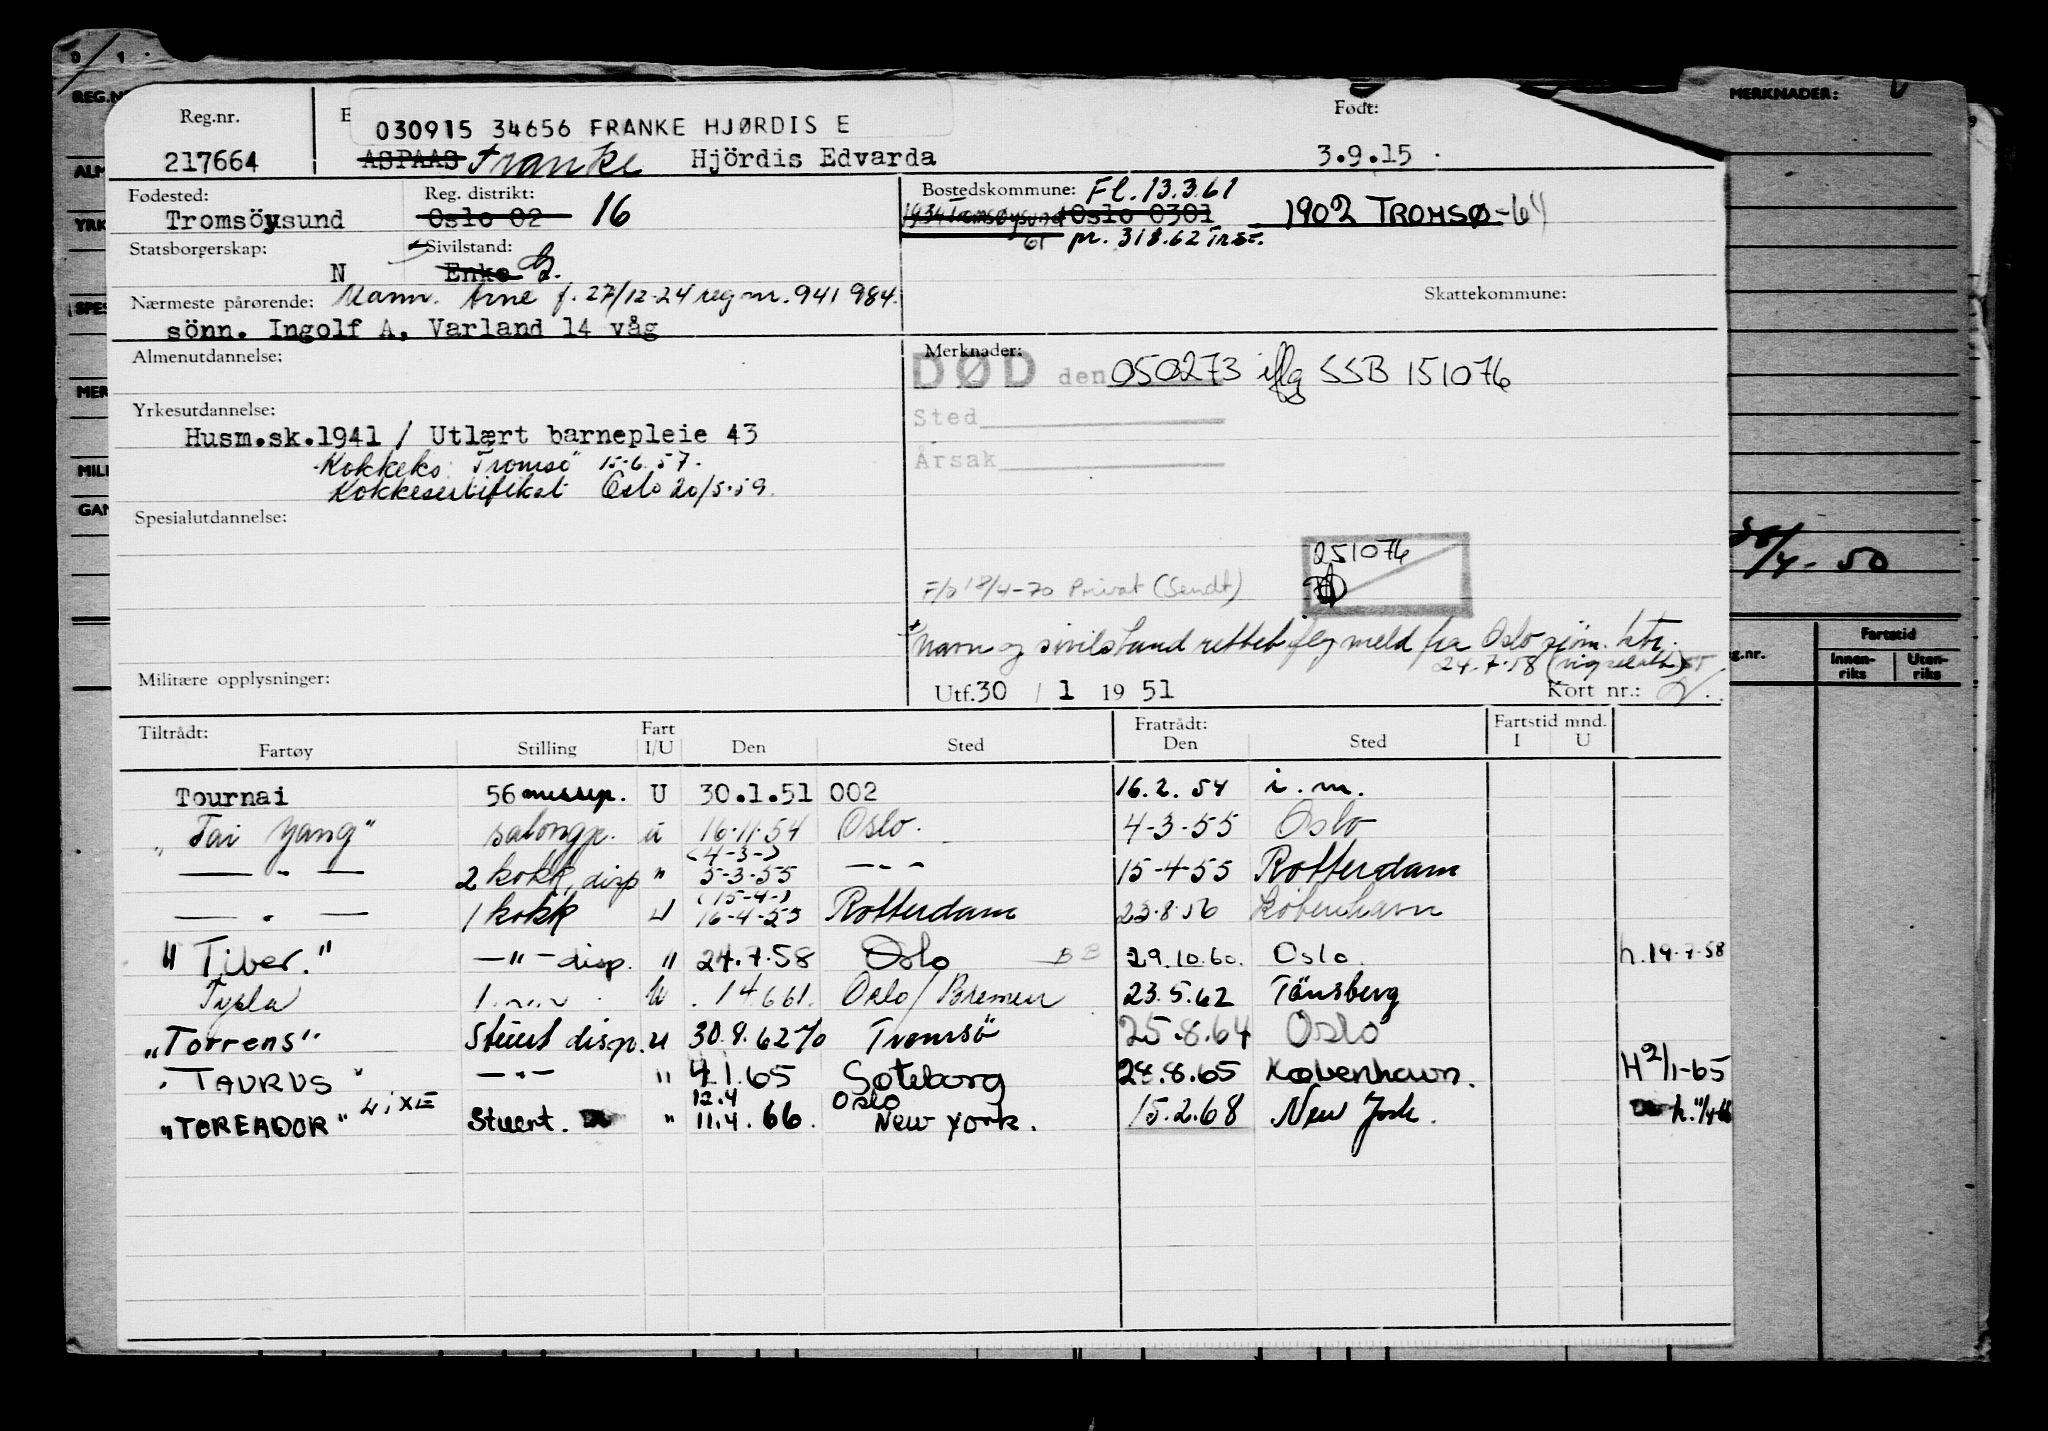 REG.N
MERKNADER:
Reg.nr.
030915 34656 FRANKE HJØRDIS E
Født:
217664 ASPAAS Franke Hjördis Edvarda 3.9.15
Fødested: Reg. distrikt: Bostedskommune: Fl. 13.3.61
Tromsöysund Oslo 02 16 1934 Tromsøysund Oslo 0301 1902 TROMSØ-64
Statsborgerskap: Sivilstand: pr. 318.62
N Enke G.
Nærmeste pårørende: Mann. Arne f. 27/12-24 reg nr. 941 984. Skattekommune:
sönn. Ingolf A, Varland 14 våg
Almenutdannelse: Merknader:
DØD den 050273 iflg SSB 151076
Yrkesutdannelse: Sted
Husm.sk.1941 / Utlært barnepleie 43
Kokkeks. Tromsö 15.6.57. Årsak
Kokkesertifikat Oslo 20/5.59.
Spesialutdannelse:
251076
F/b 18/4-70 Privat (Sendt)
Navn og sivilstand rettet iflg meld fra Oslo sjöm. ktr.
24.7.58
Militære opplysninger: Utf. 30 / 1 19 51 Kort nr.:
Tiltrådt: Fart Fratrådt: Fartstid mnd.
Fartøy Stilling I/U Den Sted Den Sted I U
Tournai 56 messep. U 30.1.51 002 16.2.54 i.m.
"Tai Yang" salongp. u 16.11.54 Oslo. 4-3-55 Oslo
(4-3-)
— " — 2 kokk, disp " 5-3-55 — " — 15-4-55 Rotterdam
(15-4-)
— " — 1 kokk U 16-4-55 Rotterdam 23.8.56 København
"Tiber." — " — disp. " 24.7.58 Oslo 29.10.60. Oslo. h. 19.7.58
1 — " — U 14.6.61. Oslo/Bremen 23.5.62 Tönsberg
"Torrens" Stuert disp. u 30.8.62 Tromsö 25.8.64 Oslo
"TAURUS" — " — " 4.1.65 Göteborg 28.8.65 København. H 2/1-65
12.4 Oslo
"TOREADOR" Stuert. " 11.4.66. New York. 15.2.68 New York. h. 11/4-66
/4-50
Fartstid
Innen-riks Uten-riks